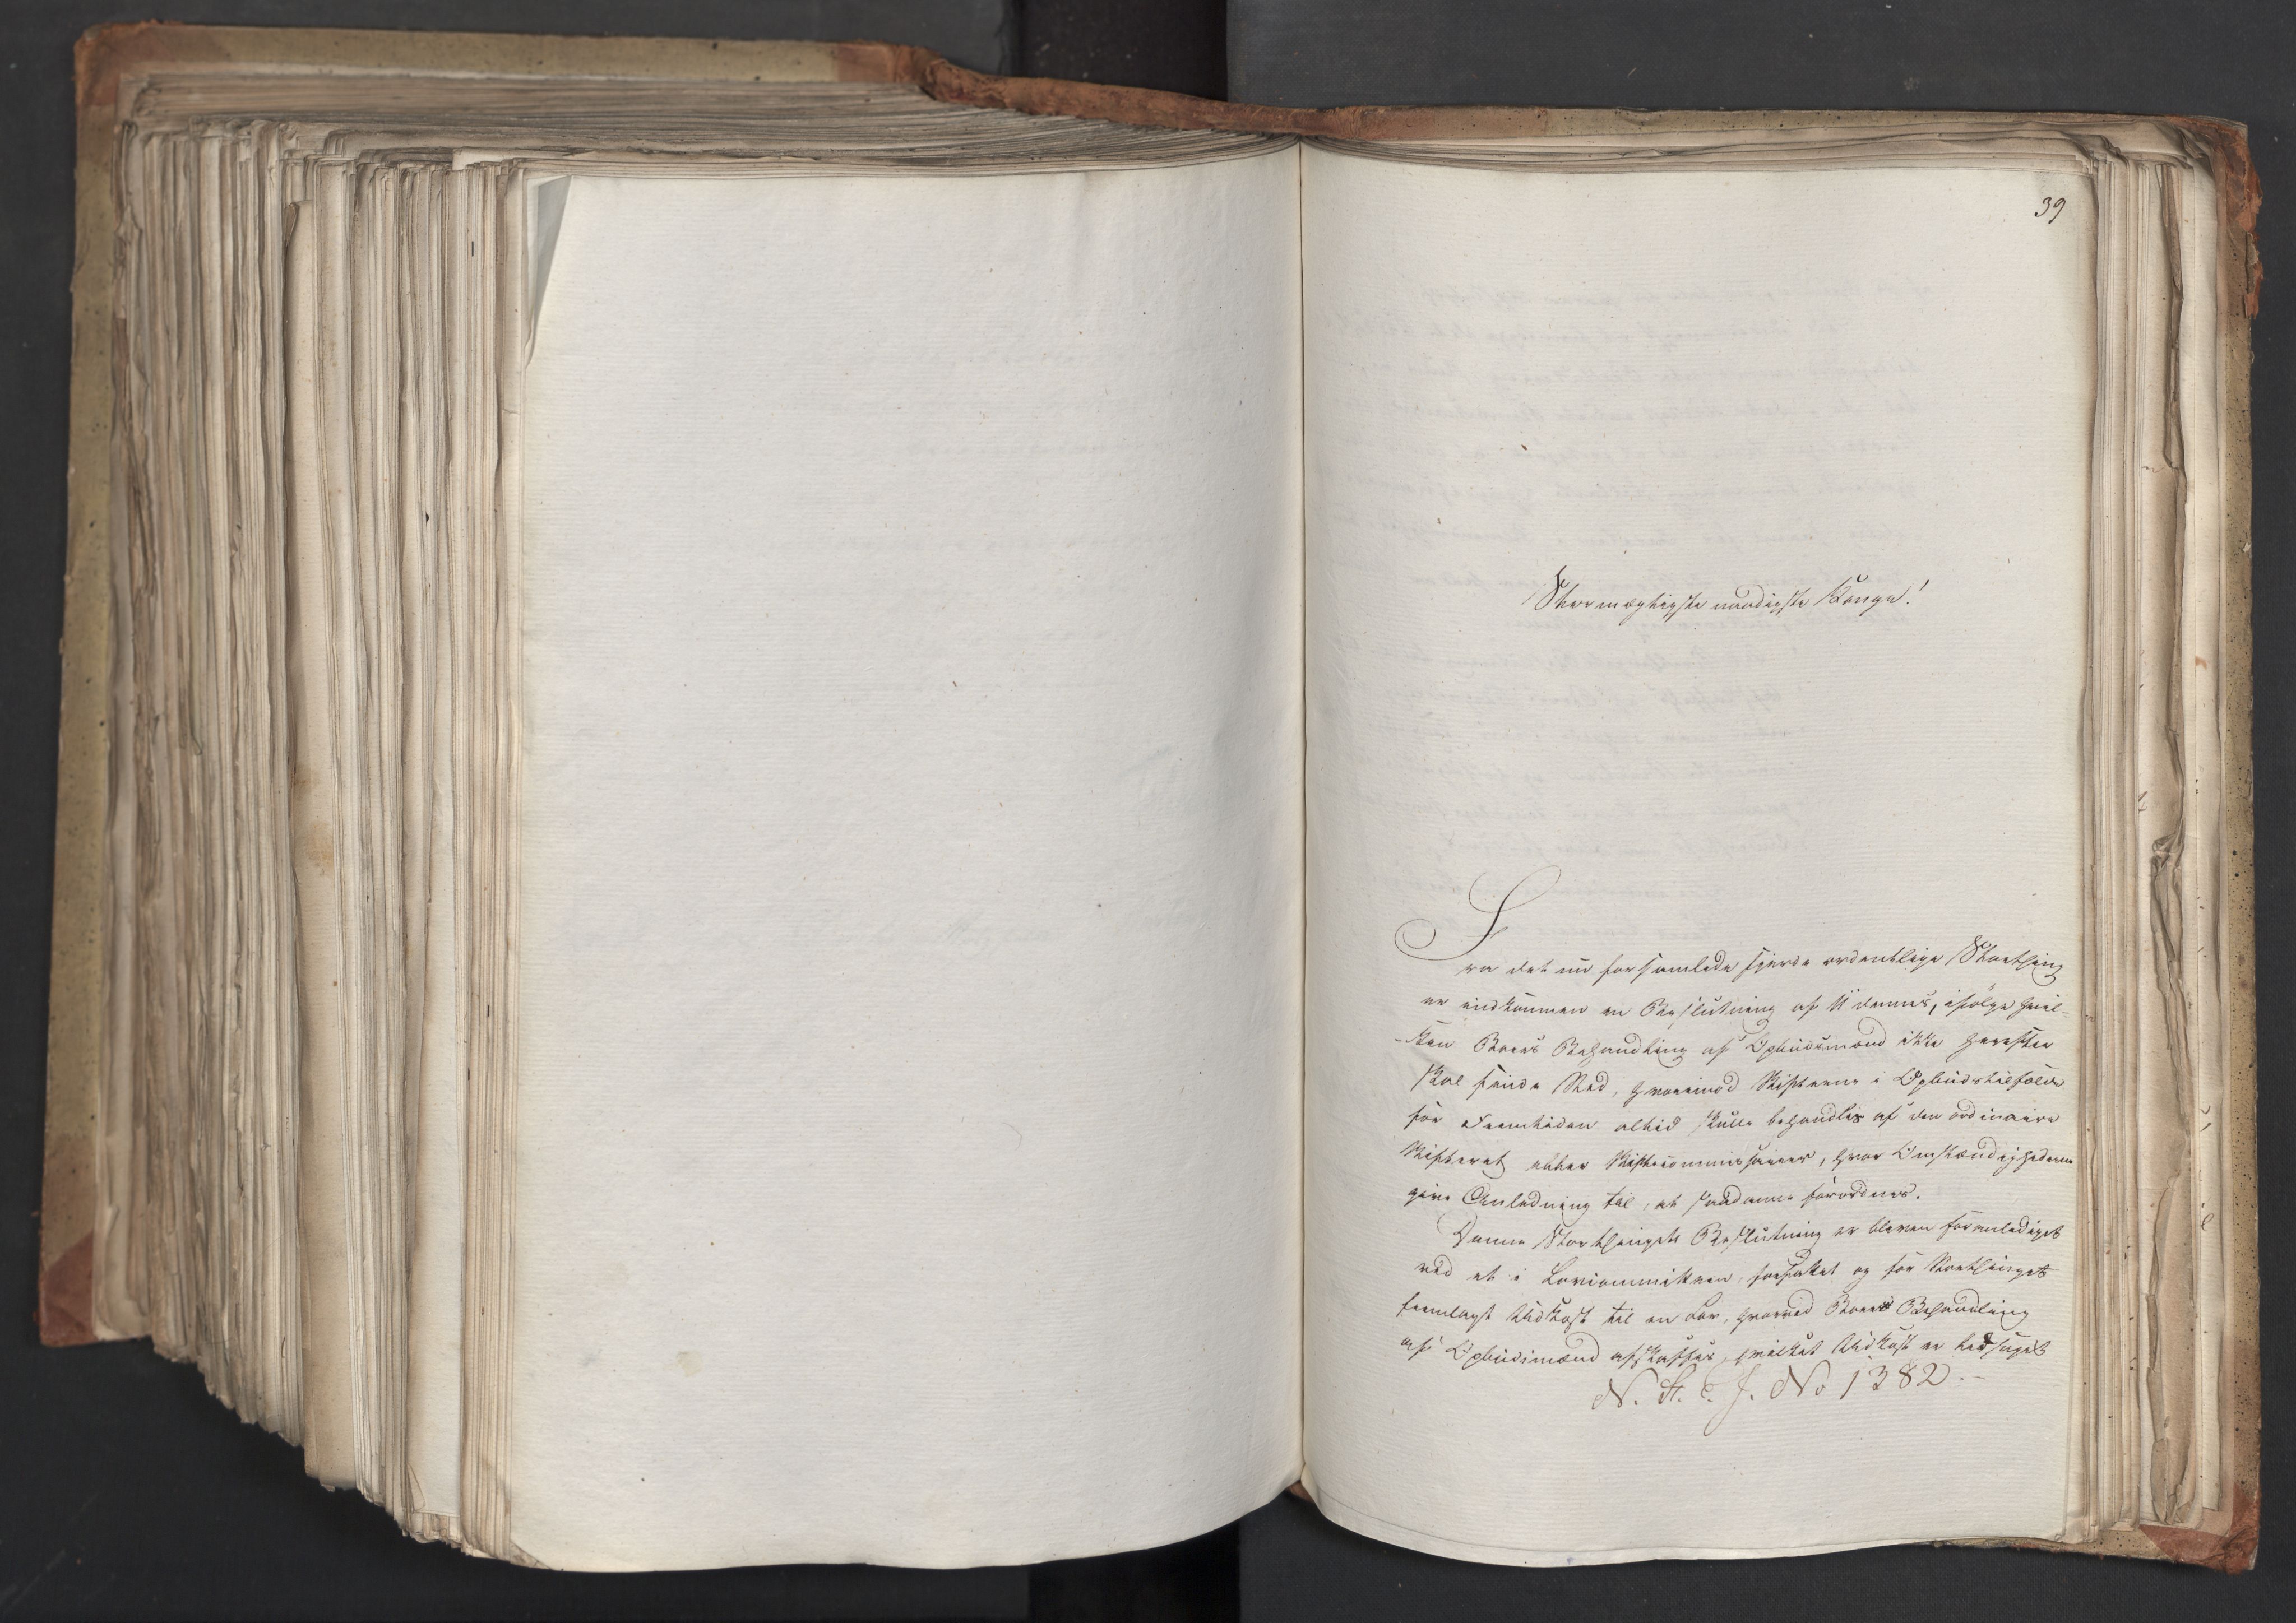 39
Stormægtigste naadigste Konge!
Fra det nu forsamlede fjerde ordentlige Storthing
er indkommen en Beslutning af 11 dennes, ifølge hvil-
-ken Boers Behandling af Opbudsmænd ikke herefter
skal finde Sted, hvorimod Skifterne i Opbudstilfælde
for Fremtiden altid skulle behandles af den ordinaire
Skifteret eller Skiftecommissairer, hvor Omstændighederne
give Anledning til, at saadanne forordnes.
Denne Storthingets Beslutning er bleven foranlediget
ved et i Lovcommitteen forfattet og for Storthinget
fremlagt Udkast til en Lov, hvorved Boers Behandling
af Opbudsmænd afskaffes, hvilket Udkast er ledsaget
N. St. C. J. No 1382.-